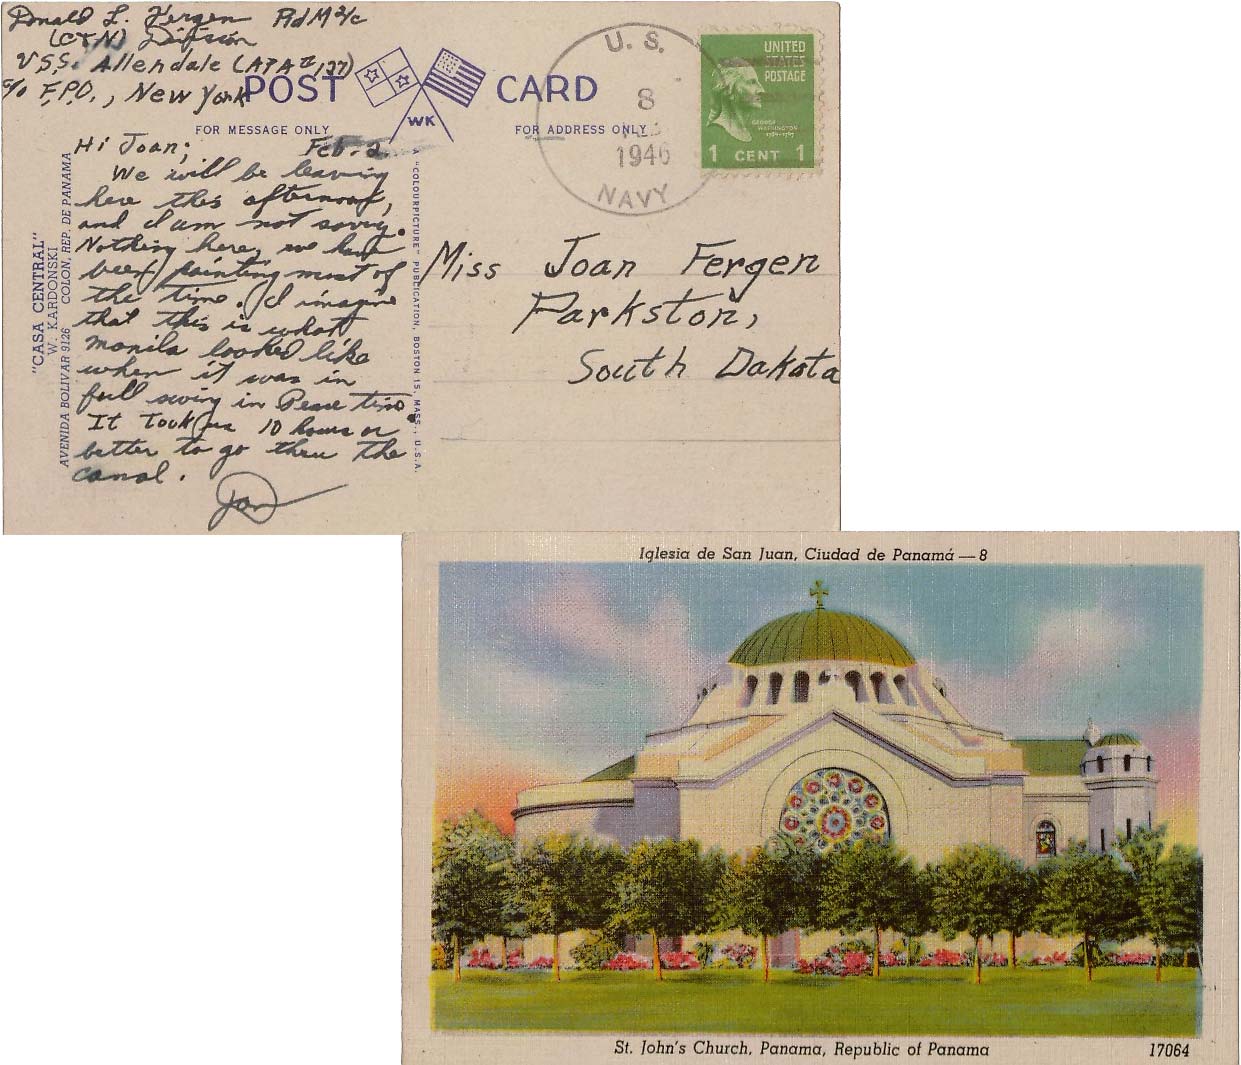 Donald L. Fergen RdM 2/c
(C&N) Division
U.S.S. Allendale (APA #127)
c/o F.P.O., New York
POST CARD
WK
FOR MESSAGE ONLY
FOR ADDRESS ONLY
U. S.
8
1946
NAVY
UNITED
STATES
POSTAGE
GEORGE
WASHINGTON
1789-1797
1 CENT 1
Feb. 2.
Hi Joan;
We will be leaving
here this afternoon,
and I am not sorry.
Nothing here, we have
been painting most of
the time. I imagine
that this is what
manila looked like
when it was in
full swing in Peace time
It took us 10 hours or
better to go thru the
canal.
Don
"CASA CENTRAL"
W. KARDONSKI
AVENIDA BOLIVAR 9126 COLON, REP. DE PANAMA
A "COLOURPICTURE" PUBLICATION, BOSTON 15, MASS., U.S.A.
Miss Joan Fergen
Parkston,
South Dakota
Iglesia de San Juan, Ciudad de Panamá — 8
St. John's Church, Panama, Republic of Panama
17064